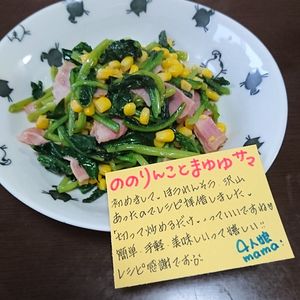 ののりんことまゆゆサマ
初めまして、ほうれんそう、沢山
あったのでレシピ拝借しました。
切って炒めるだけ、、、っていいですね!!
簡単、手軽、美味しいって嬉しい♡
レシピ感謝ですが
4人娘
mama.